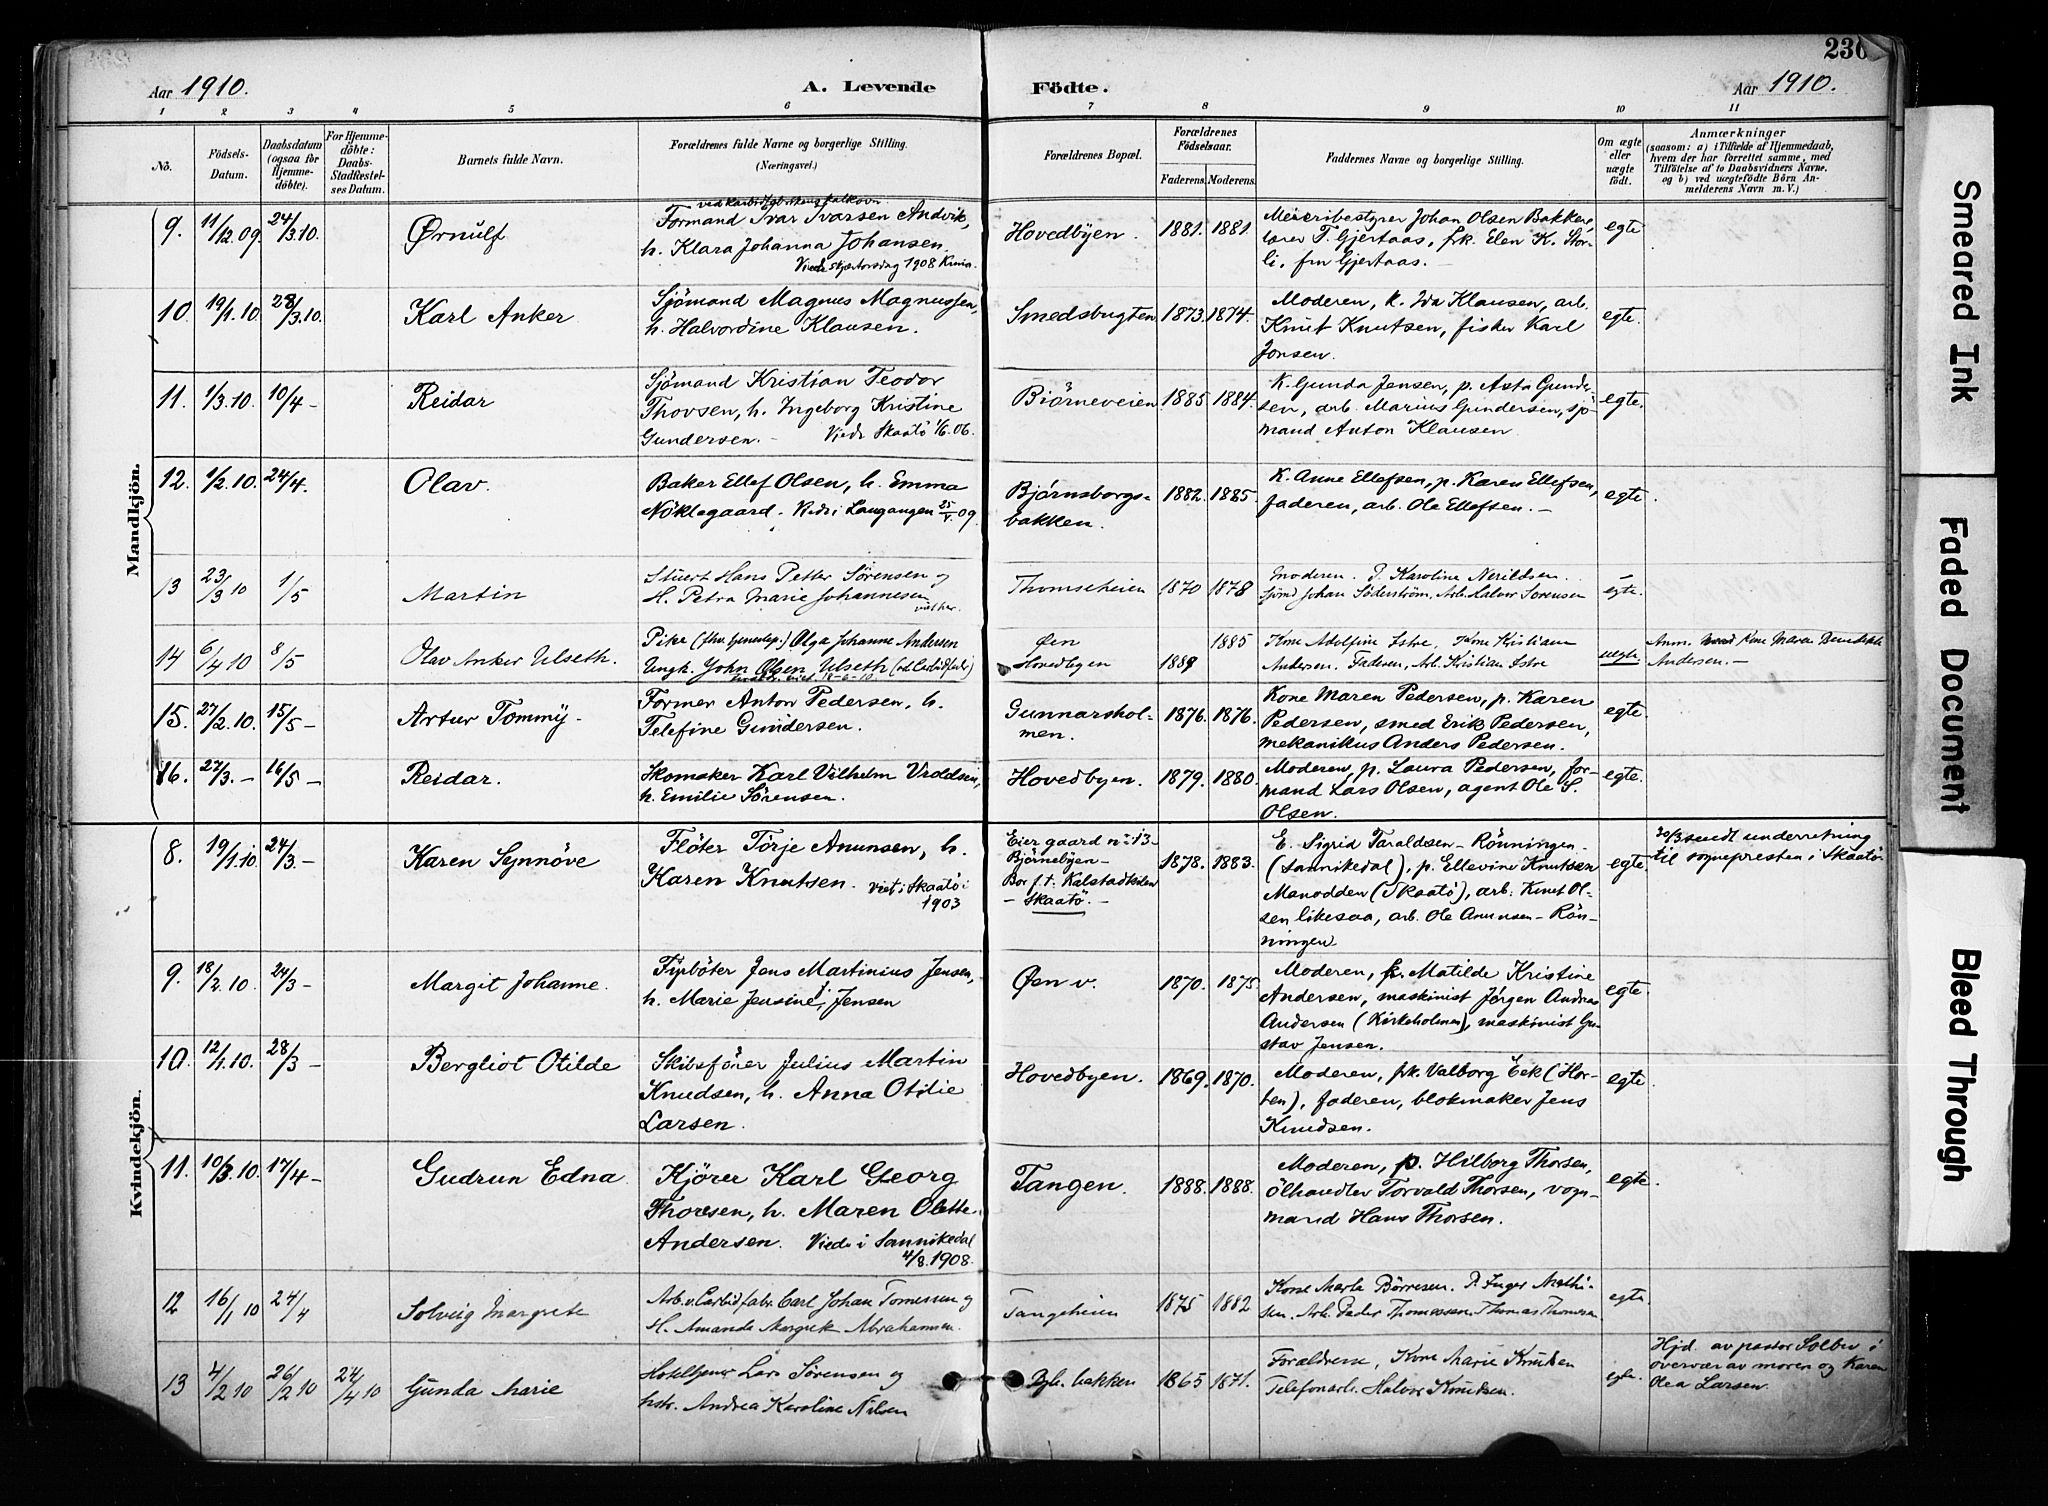 230
Aar 1910. A. Levende Födte. Aar 1910.
1 2 3 4 5 6 7 8 9 10 11
No. Födsels-Datum. Daabsdatum (ogsaa for Hjemmedöbte). For Hjemmedöbte: Daabs-Stadfæstelses Datum. Barnets fulde Navn. Forældrenes fulde Navne og borgerlige Stilling. (Næringsvei.) Forældrenes Bopæl. Forældrenes Födselsaar. Faderens. Moderens. Faddernes Navne og borgerlige Stilling. Om ægte eller uægte födt. Anmærkninger (saasom: a) i Tilfælde af Hjemmedaab, hvem der har forrettet samme, med Tilföielse af to Daabsvidners Navne. og b) ved uægtefödte Börn Anmelderens Navn m. V.)
Mandkjön.
9. 11/12.09. 24/3.10. Ørnulf Formand Ivar Ivarsen Andvik, Hovedbyen. 1881. 1881. Meieribestyrer Johan Olsen Bakker, egte
h. Klara Johanna Johansen. lærer T. Gjertaas, frk. Elen K. Stor-
Viede skjærtorsdag 1908 li, fru Gjertaas. —
10. 19/1.10. 28/3.10. Karl Anker Sjömand Magnus Magnussen, Smedsbugten 1873. 1874. Moderen, k. Ida Klausen, arb. egte.
h. Halvordine Klausen. Knut Knutsen, fisker Karl
Jonsen.
11. 1/3.10. 10/4 — Reidar Sjömand Kristian Teodor Björneveien 1885. 1884. K. Gunda Jensen, p. Asta Gunder- egte.
Thovsen, h. Ingeborg Kristine sen, arb. Marius Gundersen, sjö-
Gundersen. — Viede Skaatö 06. mand Anton Klausen
12. 1/2.10. 24/4. Olav. Baker Ellef Olsen, h. Emma Björnsborgs- 1882. 1885. K. Anne Ellefsen, p. Karen Ellefsen, egte.
Nöklegaard. Viede i Langangen 09. bakken. faderen, arb. Ole Ellefsen. —
13 23/3 10 1/5 Martin Stuert Hans Petter Sørensen og Thomseheien 1870 1878 Moderen. P. Karoline Nerildsen. egte.
H. Petra Marie Johannesen Sjömd Johan Söderström, Arb. Halvor Sorensen
14 6/4 10 8/5 Olav Anker Ulseth. Pike Olga Johanne Andersen Øen 1885 Kone Adolfine Istre, Kone Kristiane uegte. Anm. Kone Maren Benedikte
Ungk. John Olsen Ulseth Hovedbyen 1889 Andersen. Faderen, Arb. Kristian Istre Andersen. —
15. 27/2.10. 15/5 — Artur Tommy. Former Anton Pedersen, h. Gunnarshol- 1876. 1876. Kone Maren Pedersen, p. Karen egte.
Telefine Gundersen. men. Pedersen, smed Erik Pedersen,
mekanikus Anders Pedersen.
16. 27/3. — 16/5 — Reidar. Skomaker Karl Vilhelm Vroldsen, Hovedbyen. 1879. 1880. Moderen, p. Laura Pedersen, for- egte.
h. Emilie Sörensen. mand Lars Olsen, agent Ole S.
Olsen.
Kvindekjön.
8. 19/1.10. 24/3 — Karen Synnöve Flöter Törje Anunsen, h. Eier gaard nr 13 1878. 1883. E. Sigrid Taraldsen — Rönningen egte. 30/3 sendt underretning
Karen Knutsen. Viet i Skaatö i Björnebyen — (Sannikedal), p. Ellevine Knutsen til sognepresten i Skaatö
1903 Bor f. t. Kalstadkilen Manodden (Skaatö), arb. Knut Ol-
— Skaatö. — sen likesaa, arb. Ole Anunsen — Rön-
ningen
9. 18/2.10. 24/3 — Margit Johanne. Fyrböter Jens Martinius Jensen, Øen v. 1870. 1875. Moderen, k. Matilde Kristine egte.
h. Marie Jensine Jensen Andersen, maskinist Jörgen Andreas
Andersen (Kirkeholmen), maskinist Gu-
stav Jensen.
10. 12/1.10. 28/3 — Bergliot Otilde Skibsförer Julius Martin Hovedbyen. 1869. 1870. Moderen, frk. Valborg Eek (Hor- egte.
Knudsen, h. Anna Otilie ten), faderen, blokmaker Jens
Larsen. Knudsen.
11. 10/3.10. 17/4 — Gudrun Edna Kjörer Karl Georg Tangen. 1888. 1888. Moderen, p. Hilborg Thorsen, egte.
Thoresen, h. Maren Olette ölhandler Torvald Thorsen, vogn-
Andersen. Viede i Sannikedal mand Hans Thorsen.
4/8.1908.
12 16/1 10 24/4 Solveig Margrete Arb. v. Carbidfabr. Carl Johan Tomesen og Tangeheien 1875 1882 Kone Marte Börresen. P. Inger Mathi- egte
H. Amanda Margrete Abrahamsen. sen. Arb. Peder Thomessen. Thomas Thomesen
13 4/2 10 26/2 10 24/4 10 Gunda Marie Lars Sörensen og bakken 1865 1871. Forældrene, Kone Marie Knudsen egte. Hjd. av pastor Solberg i
hstr. Andrea Karoline Nilsen Telefonarb. Halvor Knudsen. overvær av moren og Karen
Olea Larsen.
Smeared Ink
Faded Document
Bleed Through